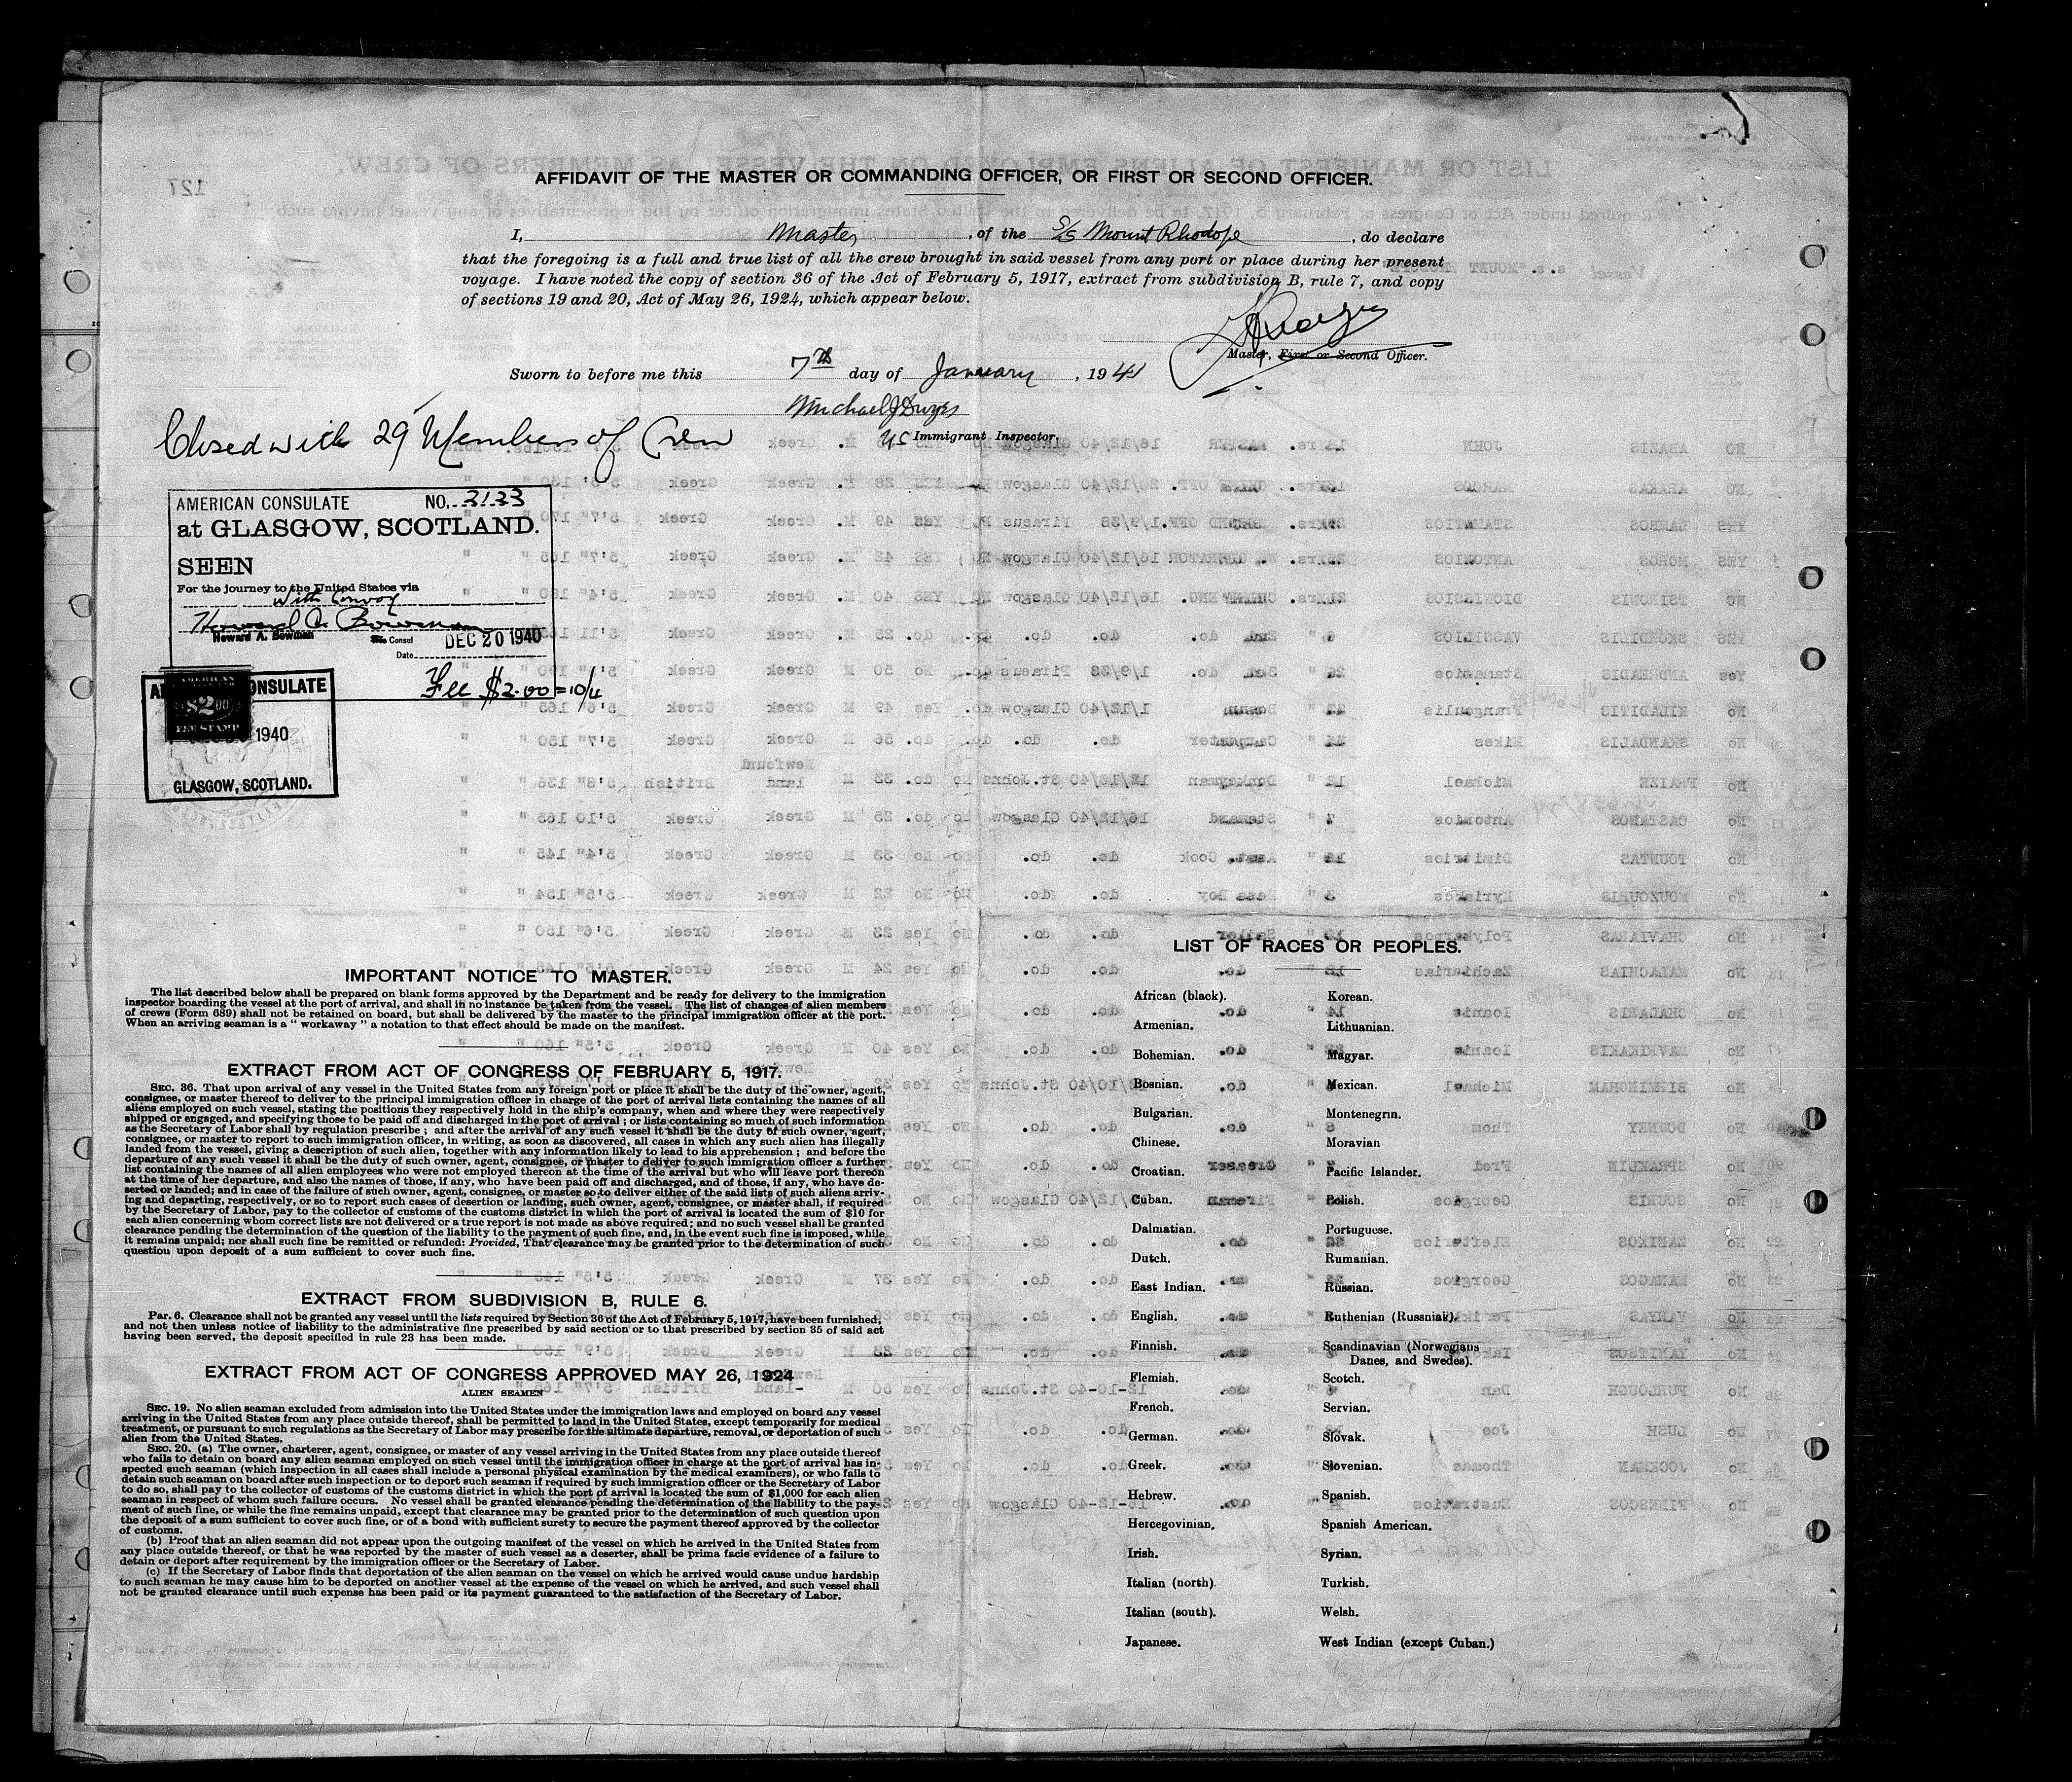 AFFIDAVIT OF THE MASTER OR COMMANDING OFFICER, OR FIRST OR SECOND OFFICER.
I, Master, of the S/S Mount Rhodope, do declare
that the foregoing is a full and true list of all the crew brought in said vessel from any port or place during her present
voyage. I have noted the copy of section 36 of the Act of February 5, 1917, extract from subdivision B, rule 7, and copy
of sections 19 and 20, Act of May 26, 1924, which appear below.
Master, First or Second Officer.
Sworn to before me this 7th day of January, 1941
Michael J Dwyer
US Immigrant Inspector.
Closed with 29 Members of Crew
AMERICAN CONSULATE NO. 3133
at GLASGOW, SCOTLAND.
SEEN
For the journey to the United States via
with Convoy
Howard A. Bowman
Howard A. Bowman Consul DEC 20 1940
Date
Fee $2.00 = 10/4
AMERICAN CONSULATE
$2.00
FEE STAMP
1940
GLASGOW, SCOTLAND.
IMPORTANT NOTICE TO MASTER.
The list described below shall be prepared on blank forms approved by the Department and be ready for delivery to the immigration
inspector boarding the vessel at the port of arrival, and shall in no instance be taken from the vessel. The list of changes of alien members
of crews (Form 689) shall not be retained on board, but shall be delivered by the master to the principal immigration officer at the port.
When an arriving seaman is a “ workaway ” a notation to that effect should be made on the manifest.
EXTRACT FROM ACT OF CONGRESS OF FEBRUARY 5, 1917.
SEC. 36. That upon arrival of any vessel in the United States from any foreign port or place it shall be the duty of the owner, agent,
consignee, or master thereof to deliver to the principal immigration officer in charge of the port of arrival lists containing the names of all
aliens employed on such vessel, stating the positions they respectively hold in the ship's company, when and where they were respectively
shipped or engaged, and specifying those to be paid off and discharged in the port of arrival ; or lists containing so much of such information
as the Secretary of Labor shall by regulation prescribe ; and after the arrival of any such vessel it shall be the duty of such owner, agent,
consignee, or master to report to such immigration officer, in writing, as soon as discovered, all cases in which any such alien has illegally
landed from the vessel, giving a description of such alien, together with any information likely to lead to his apprehension ; and before the
departure of any such vessel it shall be the duty of such owner, agent, consignee, or master to deliver to such immigration officer a further
list containing the names of all alien employees who were not employed thereon at the time of the arrival but who will leave port thereon
at the time of her departure, and also the names of those, if any, who have been paid off and discharged, and of those, if any, who have de-
serted or landed; and in case of the failure of such owner, agent, consignee, or master so to deliver either of the said lists of such aliens arriv-
ing and departing, respectively, or so to report such cases of desertion or landing, such owner, agent, consignee, or master shall, if required
by the Secretary of Labor, pay to the collector of customs of the customs district in which the port of arrival is located the sum of $10 for
each alien concerning whom correct lists are not delivered or a true report is not made as above required; and no such vessel shall be granted
clearance pending the determination of the question of the liability to the payment of such fine, and, in the event such fine is imposed, while
it remains unpaid; nor shall such fine be remitted or refunded: Provided, That clearance may be granted prior to the determination of such
question upon deposit of a sum sufficient to cover such fine.
EXTRACT FROM SUBDIVISION B, RULE 6.
Par. 6. Clearance shall not be granted any vessel until the lists required by Section 36 of the Act of February 5, 1917, have been furnished,
and not then unless notice of liability to the administrative fine prescribed by said section or to that prescribed by section 35 of said act
having been served, the deposit specified in rule 23 has been made.
EXTRACT FROM ACT OF CONGRESS APPROVED MAY 26, 1924
ALIEN SEAMEN
SEC. 19. No alien seaman excluded from admission into the United States under the immigration laws and employed on board any vessel
arriving in the United States from any place outside thereof, shall be permitted to land in the United States, except temporarily for medical
treatment, or pursuant to such regulations as the Secretary of Labor may prescribe for the ultimate departure, removal, or deportation of such
alien from the United States.
SEC. 20. (a) The owner, charterer, agent, consignee, or master of any vessel arriving in the United States from any place outside thereof
who fails to detain on board any alien seaman employed on such vessel until the immigration officer in charge at the port of arrival has in-
spected such seaman (which inspection in all cases shall include a personal physical examination by the medical examiners), or who fails to
detain such seaman on board after such inspection or to deport such seaman if required by such immigration officer or the Secretary of Labor
to do so, shall pay to the collector of customs of the customs district in which the port of arrival is located the sum of $1,000 for each alien
seaman in respect of whom such failure occurs. No vessel shall be granted clearance pending the determination of the liability to the pay-
ment of such fine, or while the fine remains unpaid, except that clearance may be granted prior to the determination of such question upon
the deposit of a sum sufficient to cover such fine, or of a bond with sufficient surety to secure the payment thereof approved by the collector
of customs.
(b) Proof that an alien seaman did not appear upon the outgoing manifest of the vessel on which he arrived in the United States from
any place outside thereof, or that he was reported by the master of such vessel as a deserter, shall be prima facie evidence of a failure to
detain or deport after requirement by the immigration officer or the Secretary of Labor.
(c) If the Secretary of Labor finds that deportation of the alien seaman on the vessel on which he arrived would cause undue hardship
to such seaman he may cause him to be deported on another vessel at the expense of the vessel on which he arrived, and such vessel shall
not be granted clearance until such expense has been paid or its payment guaranteed to the satisfaction of the Secretary of Labor.
LIST OF RACES OR PEOPLES.
African (black).
Armenian.
Bohemian.
Bosnian.
Bulgarian.
Chinese.
Croatian.
Cuban.
Dalmatian.
Dutch.
East Indian.
English.
Finnish.
Flemish.
French.
German.
Greek.
Hebrew.
Hercegovinian.
Irish.
Italian (north).
Italian (south).
Japanese.
Korean.
Lithuanian.
Magyar.
Mexican.
Montenegrin.
Moravian
Pacific Islander.
Polish.
Portuguese.
Rumanian.
Russian.
Ruthenian (Russniak).
Scandinavian (Norwegians
Danes, and Swedes).
Scotch.
Servian.
Slovak.
Slovenian.
Spanish.
Spanish American.
Syrian.
Turkish.
Welsh.
West Indian (except Cuban.)